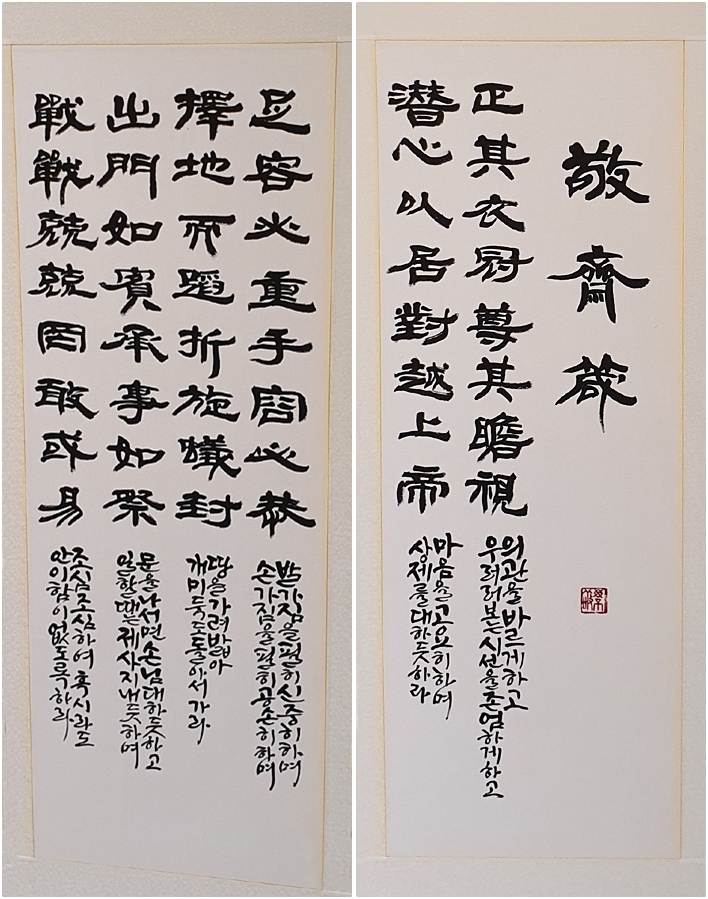 敬齋箴
正其衣冠尊其瞻視
의관을 바르게 하고
우러러본 시선을 존엄하게 하고
潛心以居對越上帝
마음을 고요히 하며
상제를 대하듯 하라
足容必重手容必恭
발가짐을 필히 신중히 하며
손가짐을 필히 공손히 하며
擇地而蹈折旋蟻封
땅을 가려 밟아
개미둑도 돌아서 가라
出門如賓承事如祭
문을 나서면 손님 대하듯 하고
일할 땐 제사 지내듯 하며
戰戰兢兢罔敢或易
조심조심하여 혹시라도
안이함이 없도록 하라